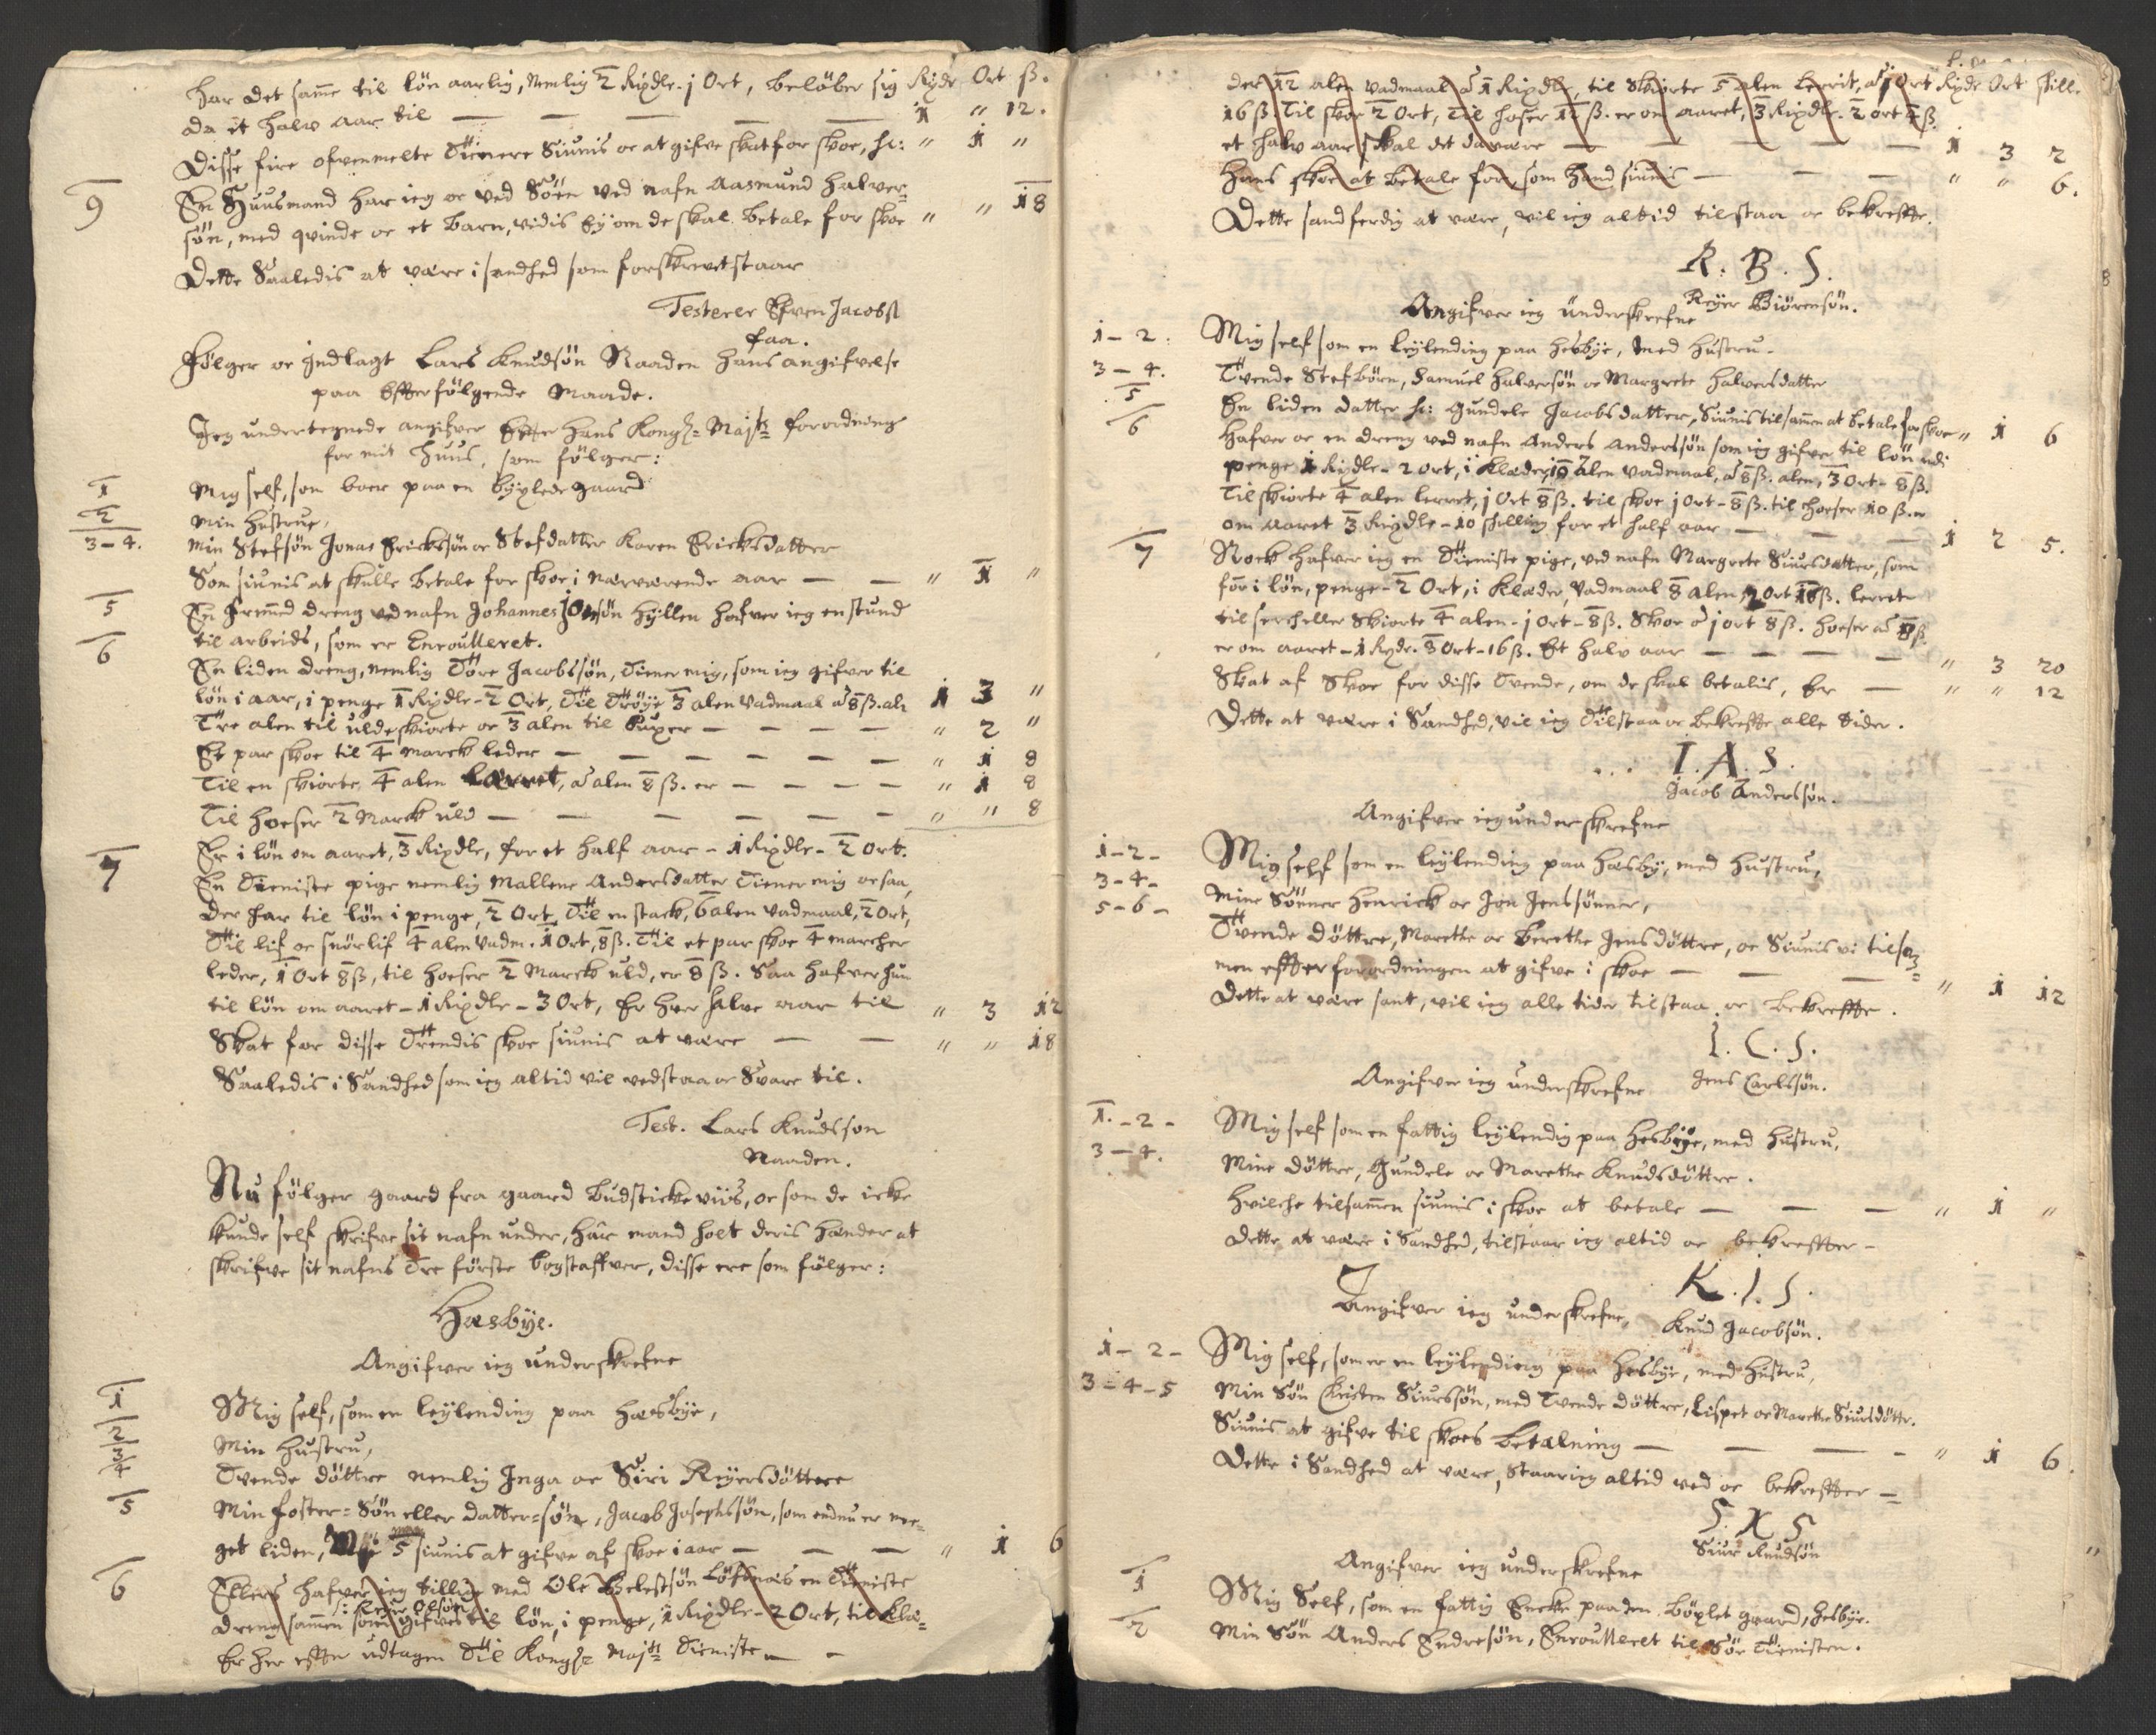 har det samme til lön aarlig, Nemlig 2 Rixdlr. j Ort, beløber sig Rixdr Ort ß.
da et halv aar til — — — — — 1 " 12.
Disse fire ofvenmelte Tienere Siunis oc at gifve skat for skoe, sc: " 1 "
9 En Huusmand har ieg oc ved Söen ved nafn Aasmund Halver=
søn, med qvinde oc et barn, vidis Ey om de skal betale for skoe " " 18
Dette Saaledis at være i sandhed som forskrevet staar
Testerer Sfven Jacobsß
faa.
Følger oc Indlagt Lars Knudsøn Naaden hans angifvelse
paa Effterfølgende Maade.
Jeg undertegnede angifver Effter Hans Kongl: Mayts forordning
for mit Huus, som følger:
1 Mig self, som boer paa en byxlede gaard
2 Min Hustrue,
3-4. Min Stefsøn Jonas Erickssøn oc Stefdatter Karen Ericksdatter
Som siunis at skulle betale for skoe i nærværende aar — — " 1 "
5 En fremmed dreng ved nafn Johannes Jonsøn Hyllen hafver ieg en stund
6 til arbeids, som er Enroulleret.
En liden dreng, nemlig Tore Jacobssøn, Tiener mig, som ieg gifver til
løn i aar, i penge 1 Rixdlr-2 Ort, Til Trøye 3 alen vadmaal a 8 ß. aln 1 3 "
Tre alen til ulde skiorte oc 3 alen til buxer — — — — " 2 "
Et par skoe til 4 Marck leder — — — — — — " 1 8
Til en skiorte, 4 alen Lærret, a alen 8 ß. er — — — — " 1 8
Til hoeser 2 Marck uld — — — — — — " " 8
Er i løn om aaret, 3 Rixdlr, for et half aar - 1 Rixdlr - 2 Ort.
7 En Tieniste pige nemlig Mallene Andersdatter Tiener mig oc saa,
der har til løn i penge, 2 Ort, Til en stack, 6 alen vadmaal, 2 Ort,
Til lif oc snörlif 4 alen vadm. 1 Ort, 8 ß. Til et par skoe 4 marcher
leder, 1 Ort 8 ß, til hoeser 2 Marck uld, er 8 ß. Saa hafver hun
til løn om aaret - 1 Rixdlr - 3 Ort, Er hver halve aar til " 3 12
Skat for disse Tvendis skoe siunis at være — — " " 18
Saaledis i Sandhed som ieg altid vil vedstaa oc Svare til.
Test. Lars Knudsson
Naaden.
Nu følger gaard fra gaard budsticke viis, oc som de icke
kunde self skrifve sit nafn under, har mand holt deris hænder at
skrifve sit nafns Tre förste bogstaffver, disse ere som følger:
Hæsbye.
Angifver ieg underskrefne
1 Mig self, som en leylending paa Hæsbye,
2 Min Hustru,
3 4 Tvende døttre nemlig Inga oc Siri Reyersdöttre
5 Min foster=Søn eller datter=søn, Jacob Josephssøn, som endnu er me=
get liden, 5 siunis at gifve af skoe i aar — — — " 1 6
6 Ellers hafver ieg tillige med Ole en tieniste
dreng sammen som gifves til løn, i penge, 1 Rixdlr - 2 Ort, til Klæ=
Er her effter udtagen Til Kongl: Mayts Tieniste — -
der 12 alen vadmaal a 1 Rixdlr, til Skiorte 5 alen lerrit, a 1 Ort Rixdr Ort skill.
16 ß. Til skoe 2 Ort, Til hoser 12 ß. er om aaret, 3 Rixdlr. 2 ort 4 ß.
et halv aar skal det da være — — — — 1 3 2
Hans skoe at betale for, som hand siunis — — — " " 6.
Dette sandferdig at være, vil ieg altid tilstaa oc bekreffte.
R. B. S.
Reyer Biörensøn.
Angifver ieg underskrefne
1-2. Mig self som en leylending paa Hesbye, med Hustru-
3-4. Tvende Stefbörn, Samuel Halversøn oc Margrete Halversdatter
5 En liden datter sc: Gundele Jacobsdatter, Siunis tilsammen at betale for skoe " 1 6
6 Hafver oc en dreng ved nafn Anders Anderssøn som ieg gifver til løn udi
penge 1 Rixdlr - 2 ort, i Klæder, 10 alen vadmaal, a 8 ß. alen, 3 Ort - 8 ß.
Til skiorte 4 alen lerret, j Ort 8 ß. til skoe j Ort - 8 ß. til hoeser 10 ß. er
om aaret 3 Rixdlr - 10 skilling for et half aar — — — 1 2 5.
7 Nock hafver ieg en Tieniste pige, ved nafn Margrete Siursdatter, som
för i løn, penge - 2 Ort, i Klæder, Vadmaal 8 alen 2 Ort 16 ß. lerret
til Skiorte 4 alen - j Ort - 8 ß. Skoe a j ort 8 ß. hoeser a 8 ß.
er om aaret - 1 Rxdr. 3 Ort - 16 ß. Et halv aar — — — — " 3 20
Skat af Skoe for disse Tvende, om de skal betalis, Er — " " 12
Dette at være i Sandhed, vil ieg Tilstaa oc bekreffte alle tider.
I. A. S.
Jacob Anderssøn.
Angifver ieg underskrefne
1-2- Mig self som en leylending paa Hæsby, med Hustru,
3-4- Mine Sønner Henrick oc Jon Jenssønner,
5-6- Tvende døttre, Marethe oc Berethe Jensdøttre, oc Siunis vi tilsam=
men effter forordningen at gifve i skoe — — — " 1 12
Dette at være sant, vil ieg alle tider tilstaa oc bekreffte.
I. C. S.
Jens Carlssøn.
Angifver ieg underskrefne
1.-2- Mig self som en fattig leylendig paa Hesbye, med Hustru,
3-4. Mine døttre, Gundele oc Marethe Knudsdøttre.
Hvilche tilsammen siunis i skoe at betale — — — " 1 "
Dette at være i Sandhed, tilstaar ieg altid oc bekreffter -
K. I. S.
Knud Jacobsøn.
Angifver ieg underskrefne,
1-2- Mig self, som er en leylending paa Hesbye, med Hustru,
3-4-5 Min Søn Christen Siurssøn, med Tvende døttre, Lispet oc Marethe Siursdøttr.
Siunis at gifve til skoes betalning — — — - " 1 6.
Dette i Sandhed at være, Staar ieg altid ved oc bekreffter —
S. K. S
Siur Knudsøn
Angifver ieg underskrefne
1 Mig Self, som en fattig Encke paa den böxlet gaard, Hesbye.
2 Min Søn Anders Endresøn, Enroulleret til Sör Tienisten.